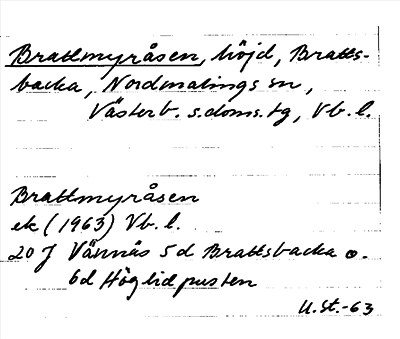 Brattmyråsen, höjd, Bratts-
backa, Nordmalings sn,
Västerb. s. doms. tg, Vb. l.
Brattmyråsen
ek (1963) Vb. l.
20 J Vännäs 5 d Brattsbacka o.
6d Höglidpusten
U. St. -63